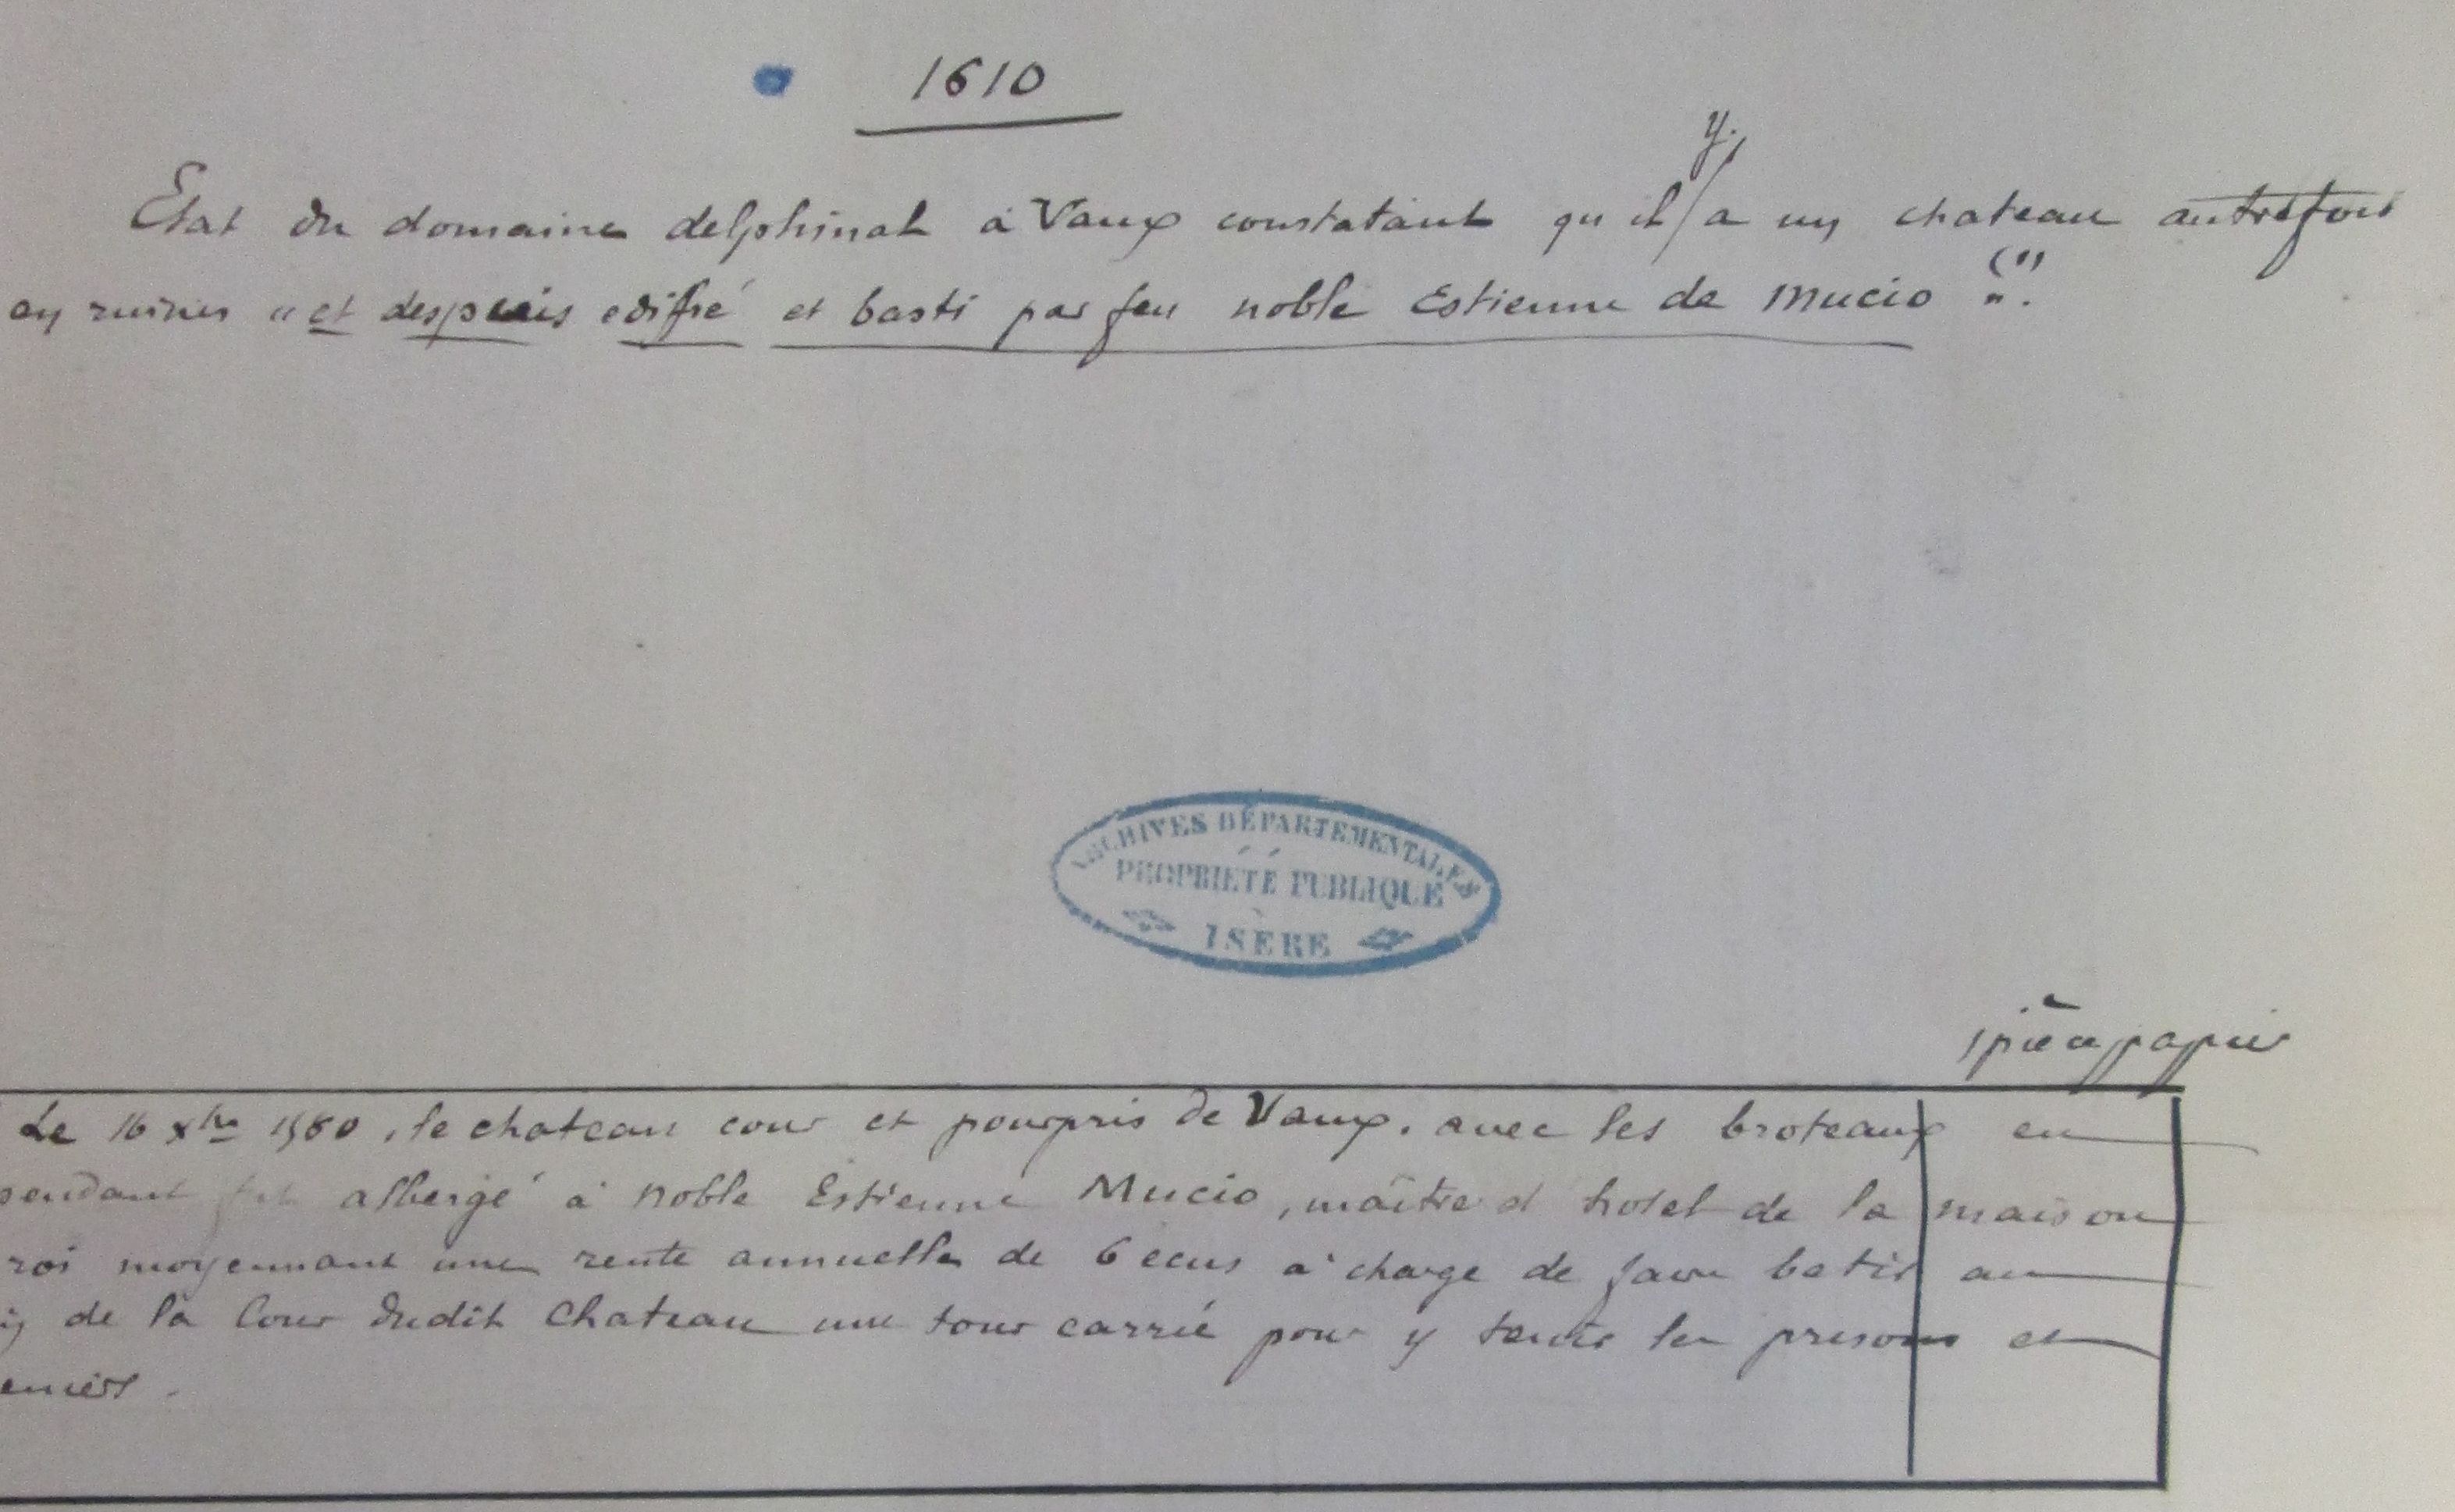 1610
y
Etat du domaine delphinal à Vaux constatant qu'il/a un chateau autrefois
en ruines "et despuis edifié et basti par feu noble Estienne de Mucio (1)".
ARCHIVES DÉPARTEMENTALES
PROPRIÉTÉ PUBLIQUE
ISÈRE
1 piece papier
Le 16 xbre 1580, le chateau cour et pourpris de Vaux, avec les broteaux en
pendant fut albergé à noble Estienne Mucio, maître d'hotel de la maison
roi moyennant une rente annuelle de 6 ecus à charge de faire batir au
de la Cour dudit Chateau une tour carrée pour y tenir les prisons et